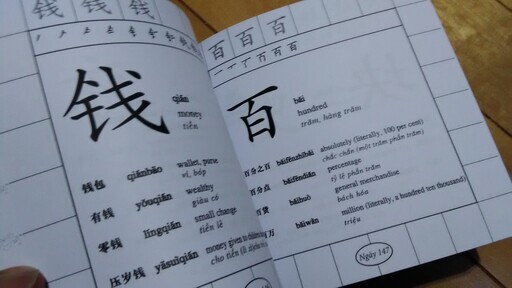 钱 钱 钱
钱
qián
money
tiền
钱包 qiánbāo wallet, purse
ví, bóp
有钱 yǒuqián wealthy
giàu có
零钱 língqián small change
tiền lẻ
压岁钱 yāsuìqián money given to children
cho tiền
百 百 百
百
bǎi
hundred
trăm, hàng trăm
百分之百 bǎifēnzhībǎi absolutely (literally, 100 per cent)
chắc chắn (một trăm phần trăm)
百分点 bǎifēndiǎn percentage
tỷ lệ phần trăm
百货 bǎihuò general merchandise
bách hóa
百万 bǎiwàn million (literally, a hundred ten thousand)
triệu
Ngày 147